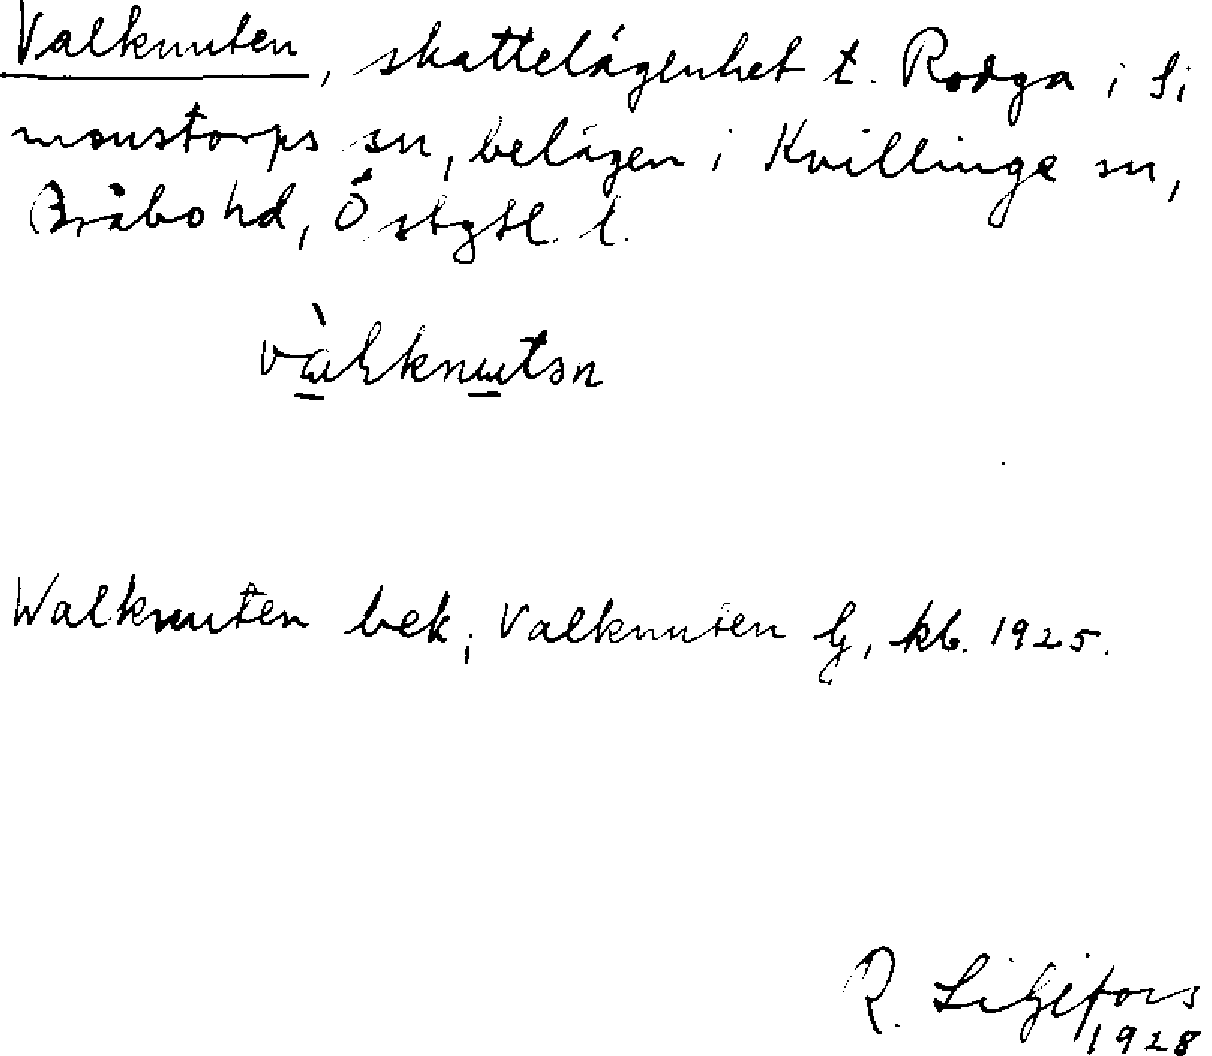 Valknuten, skattelägenhet t. Rodga i Si
monstorps sn, belägen i Kvillinge sn,
Bråbo hd, Östgtl. l.
Walknuten bek; Valknuten lg, kb. 1925.
R. Liljefors
1928